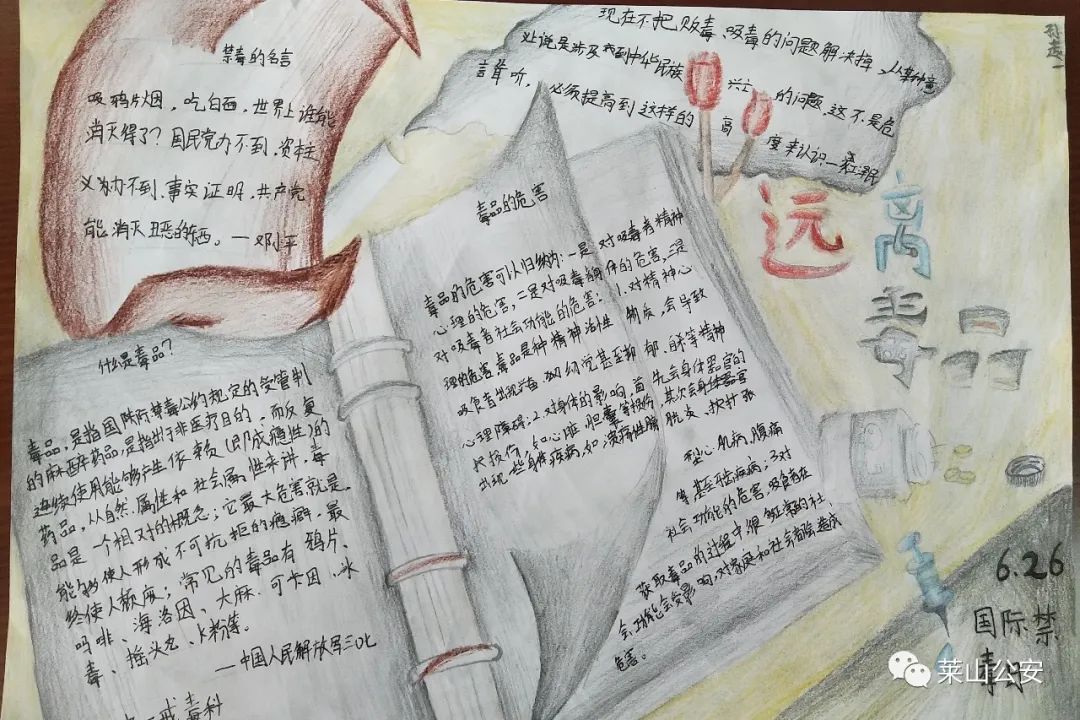 禁毒的名言
吸鸦片烟,吃白面,世界上谁能
消灭得了?国民党办不到、资本主
义办不到、事实证明,共产党
能消灭丑恶的东西。—邓小平
现在不把贩毒、吸毒的问题解决掉,从某种意
义上说是涉及我到中华民族 兴亡 的问题,这不是危
言耸听,必须提高到这样的 高 度来认识—江泽民
远
离
毒
品
什么是毒品?
毒品,是指国际禁毒公约规定的受管制
的麻醉药品,是指出于非医疗目的,而反复
连续使用能够产生依赖(即成瘾性)的
药品,从自然属性和社会属性来讲,毒
品是一个相对的概念;它最大危害就是
能够使人形成不可抗拒的瘾癖,最
终使人颓废;常见的毒品有鸦片、
吗啡、海洛因、大麻、可卡因、冰
毒、摇头丸、K粉等。
—中国人民解放军三〇二
戒毒科
毒品的危害
毒品的危害可以归纳为:一是对吸毒者精神
心理的危害,二是对吸毒者身体的危害,三是
对吸毒者社会功能的危害:1.对精神心
理的危害毒品是种精神活性物质,会导致
吸食者出现 幻觉甚至抑郁、自杀等精神
心理障碍;2.对身体的影响,首先会身体器官的
损伤,如心脏,胆囊等损伤,其次会身体器官
出现一些身体疾病,如溃疡性 、扩张
型心肌病,腹痛
等甚至 疾病;3对
社会功能的危害,吸食者在
获取毒品的过程中,很 的社
会功能会受影响,对家庭和社会都会造成
危害。
6.26
国际禁
毒日
莱山公安